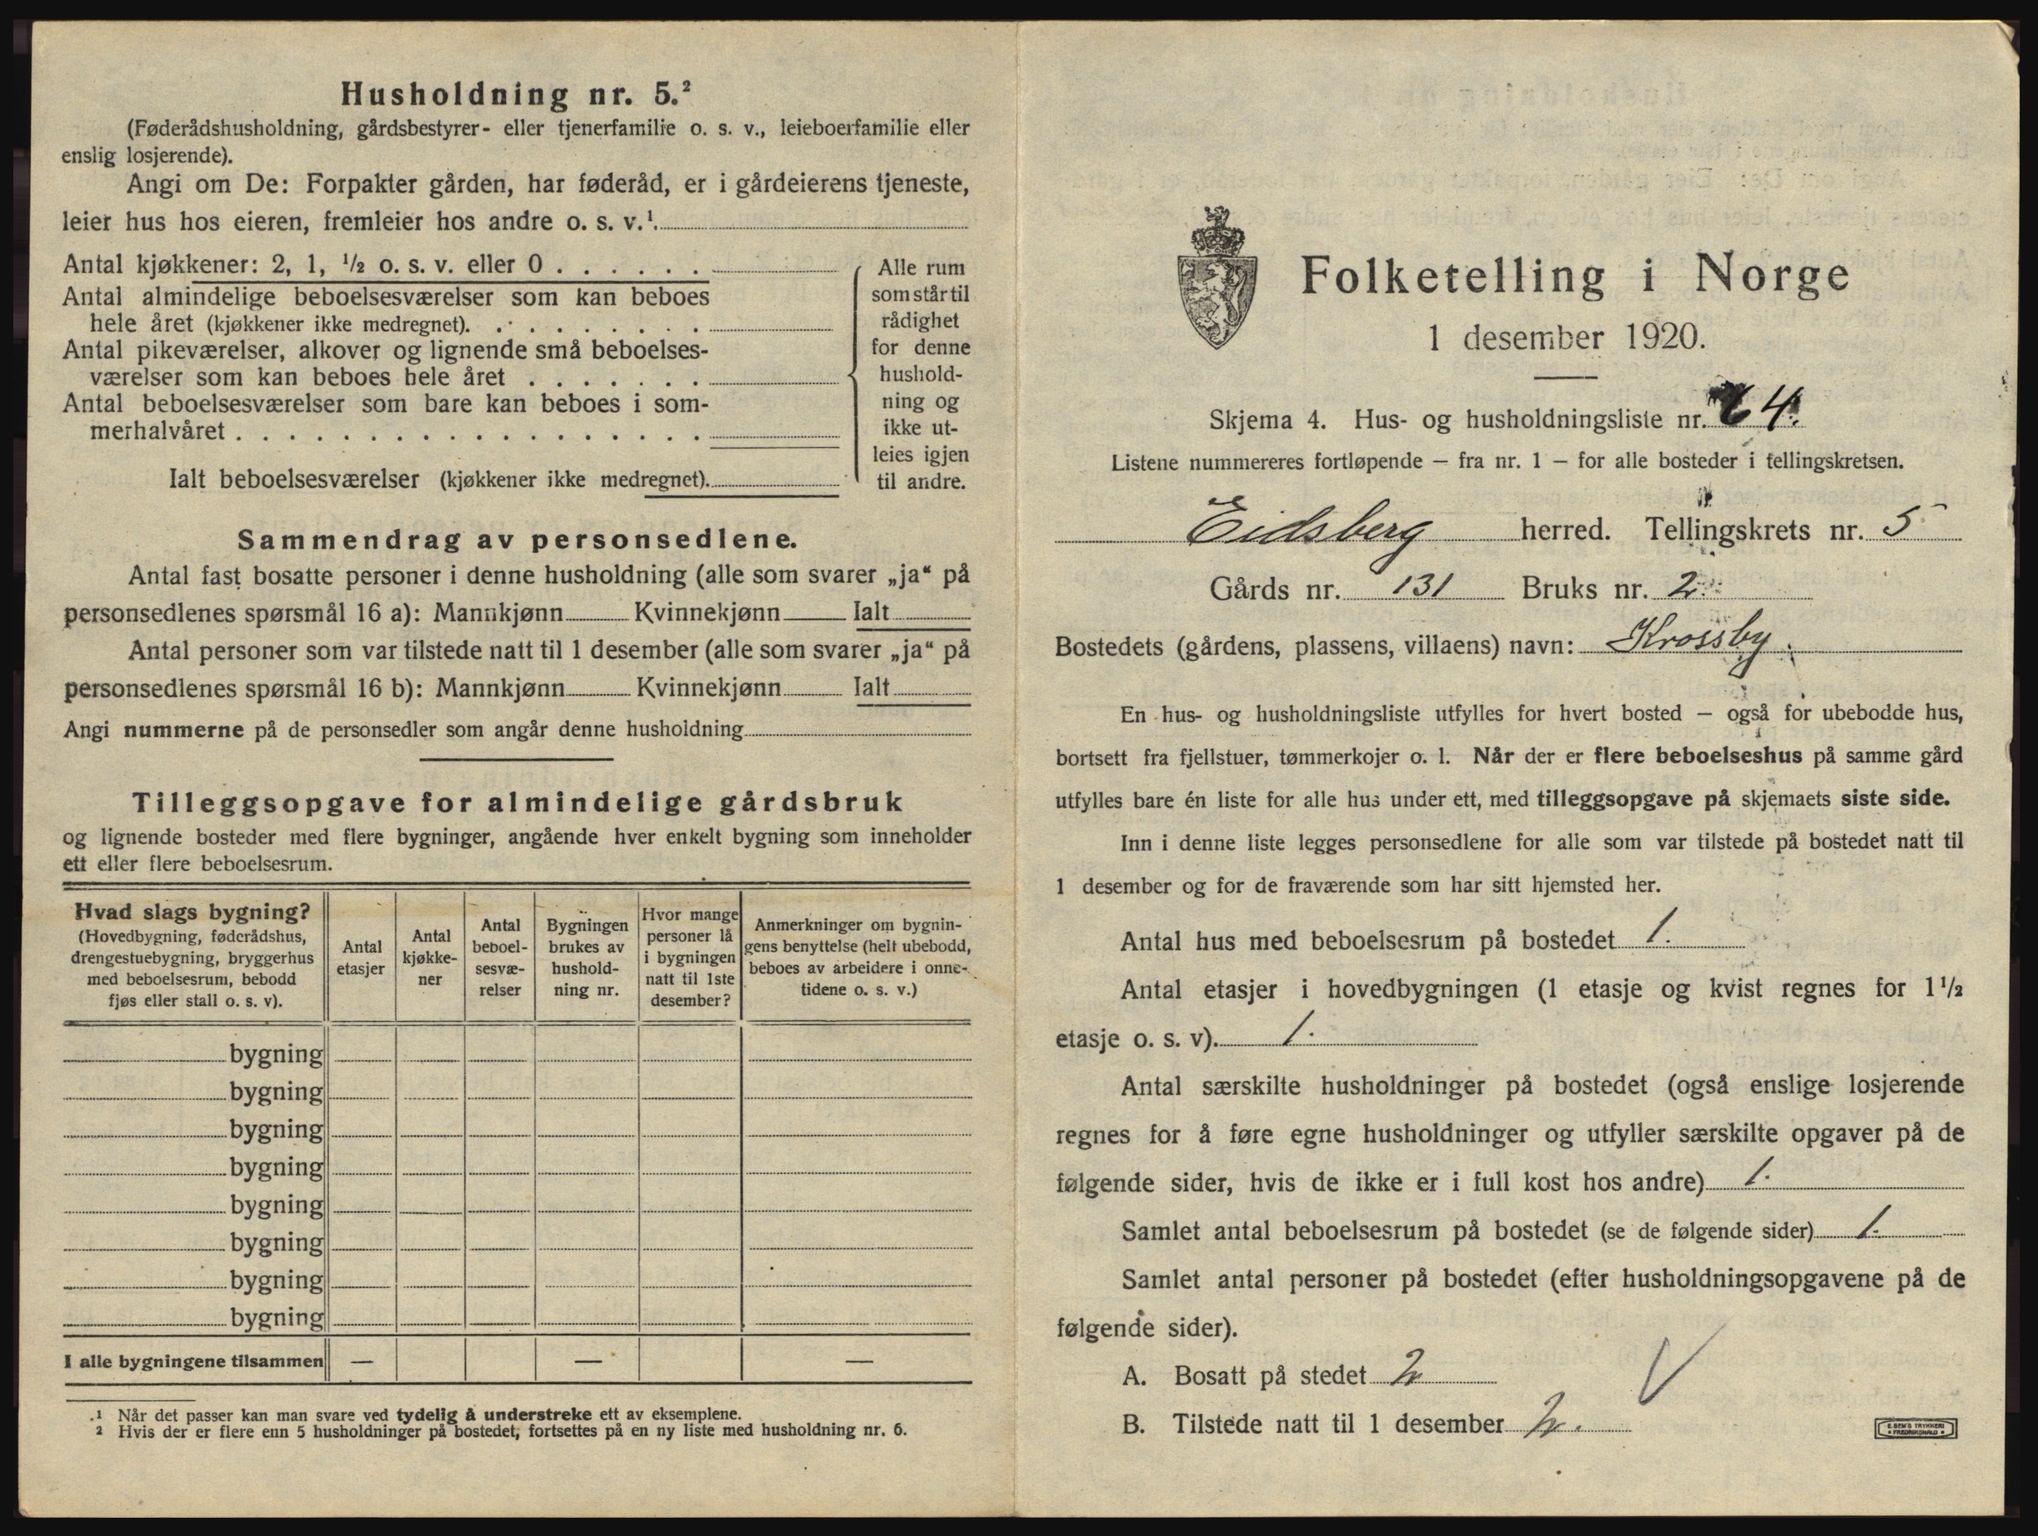 Husholdning nr. 5.²
(Føderådshusholdning, gårdsbestyrer- eller tjenerfamilie o. s. v., leieboerfamilie eller
enslig losjerende).
Angi om De: Forpakter gården, har føderåd, er i gårdeierens tjeneste,
leier hus hos eieren, fremleier hos andre o. s. v.¹.
Antal kjøkkener: 2, 1, ½ o. s. v. eller 0 . . . . . .
Antal almindelige beboelsesværelser som kan beboes
hele året (kjøkkener ikke medregnet). . . . . . . . .
Antal pikeværelser, alkover og lignende små beboelses-
værelser som kan beboes hele året . . . . . . .
Antal beboelsesværelser som bare kan beboes i som-
merhalvåret . . . . . . . . . . . . . . . . . .
Ialt beboelsesværelser (kjøkkener ikke medregnet).
Alle rum
som står til
rådighet
for denne
hushold-
ning og
ikke ut-
leies igjen
til andre.
Sammendrag av personsedlene.
Antal fast bosatte personer i denne husholdning (alle som svarer „ja“ på
personsedlenes spørsmål 16 a): Mannkjønn Kvinnekjønn Ialt
Antal personer som var tilstede natt til 1 desember (alle som svarer „ja“ på
personsedlenes spørsmål 16 b): Mannkjønn Kvinnekjønn Ialt
Angi nummerne på de personsedler som angår denne husholdning
Tilleggsopgave for almindelige gårdsbruk
og lignende bosteder med flere bygninger, angående hver enkelt bygning som inneholder
ett eller flere beboelsesrum.
Hvad slags bygning?
(Hovedbygning, føderådshus,
drengestuebygning, bryggerhus
med beboelsesrum, bebodd
fjøs eller stall o. s. v).
Antal
etasjer
Antal
kjøkke-
ner
Antal
beboel-
sesvæ-
relser
Bygningen
brukes av
hushold-
ning nr.
Hvor mange
personer lå
i bygningen
natt til 1ste
desember?
Anmerkninger om bygnin-
gens benyttelse (helt ubebodd,
beboes av arbeidere i onne-
tidene o. s. v.)
bygning
bygning
bygning
bygning
bygning
bygning
bygning
bygning
I alle bygningene tilsammen — — —
¹ Når det passer kan man svare ved tydelig å understreke ett av eksemplene.
² Hvis der er flere enn 5 husholdninger på bostedet, fortsettes på en ny liste med husholdning nr. 6.
Folketelling i Norge
1 desember 1920.
Skjema 4. Hus- og husholdningsliste nr. 64.
Listene nummereres fortløpende — fra nr. 1 — for alle bosteder i tellingskretsen.
Eidsberg herred. Tellingskrets nr. 5
Gårds nr. 131 Bruks nr. 2
Bostedets (gårdens, plassens, villaens) navn: Krossby.
En hus- og husholdningsliste utfylles for hvert bosted — også for ubebodde hus,
bortsett fra fjellstuer, tømmerkojer o. l. Når der er flere beboelseshus på samme gård
utfylles bare én liste for alle hus under ett, med tilleggsopgave på skjemaets siste side.
Inn i denne liste legges personsedlene for alle som var tilstede på bostedet natt til
1 desember og for de fraværende som har sitt hjemsted her.
Antal hus med beboelsesrum på bostedet 1.
Antal etasjer i hovedbygningen (1 etasje og kvist regnes for 1½
etasje o. s. v). 1.
Antal særskilte husholdninger på bostedet (også enslige losjerende
regnes for å føre egne husholdninger og utfyller særskilte opgaver på de
følgende sider, hvis de ikke er i full kost hos andre) 1.
Samlet antal beboelsesrum på bostedet (se de følgende sider) 1.
Samlet antal personer på bostedet (efter husholdningsopgavene på de
følgende sider).
A. Bosatt på stedet 2
B. Tilstede natt til 1 desember 2.
E. SEM'S TRYKKERI
FREDRIKSHALD